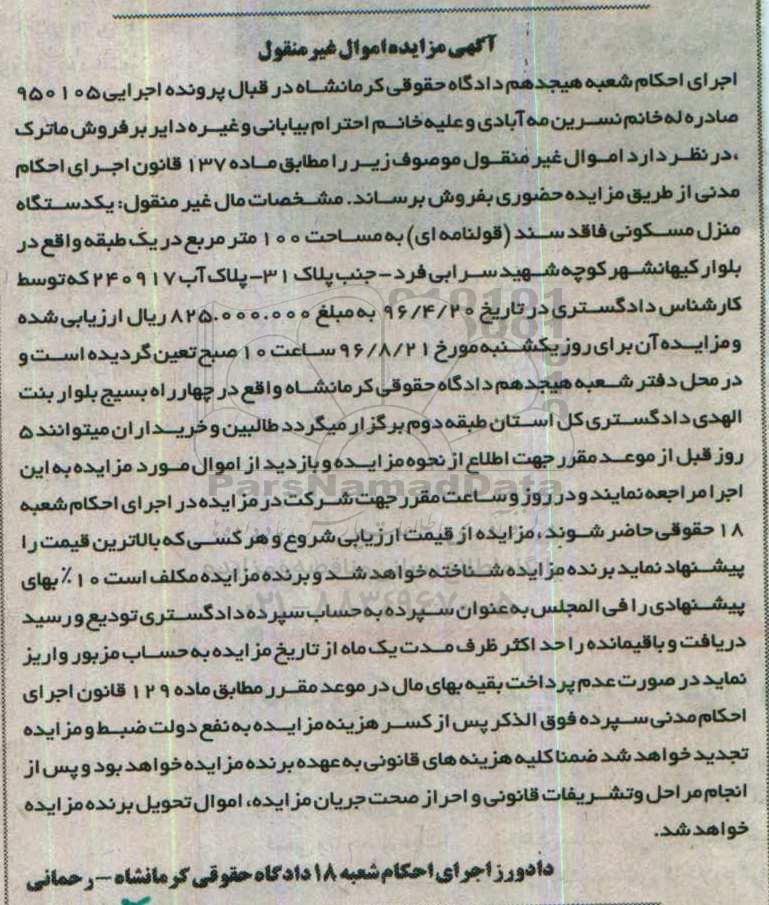 آگهی مزایده اموال غیر منقول
اجرای احکام شعبه هیجدهم دادگاه حقوقی کرمانشاه در قبال پرونده اجرایی ۹۵۰۱۰۵
صادره له خانم نسرین مه آبادی و علیه خانم احترام بیابانی و غیره دایر بر فروش ماترک
،در نظر دارد اموال غیر منقول موصوف زیر را مطابق ماده ۱۳۷ قانون اجرای احکام
مدنی از طریق مزایده حضوری بفروش برساند. مشخصات مال غیر منقول: یکدستگاه
منزل مسکونی فاقد سند (قولنامه ای) به مساحت ۱۰۰ متر مربع در یک طبقه واقع در
بلوار کیهانشهر کوچه شهید سرابی فرد -جنب پلاک ۳۱- پلاک آب ۲۴۰۹۱۷ که توسط
کارشناس دادگستری در تاریخ ۹۶/۴/۲۰ به مبلغ ۸۲۵.۰۰۰.۰۰۰ ریال ارزیابی شده
و مزایده آن برای روز یکشنبه مورخ ۹۶/۸/۲۱ ساعت ۱۰ صبح تعین گردیده است و
در محل دفتر شعبه هیجدهم دادگاه حقوقی کرمانشاه واقع در چهارراه بسیج بلوار بنت
الهدی دادگستری کل استان طبقه دوم برگزار میگردد طالبین و خریداران میتوانند ۵
روز قبل از موعد مقرر جهت اطلاع از نحوه مزایده و بازدید از اموال مورد مزایده به این
اجرا مراجعه نمایند و در روز و ساعت مقرر جهت شرکت در مزایده در اجرای احکام شعبه
۱۸ حقوقی حاضر شوند، مزایده از قیمت ارزیابی شروع و هر کسی که بالاترین قیمت را
پیشنهاد نماید برنده مزایده شناخته خواهد شد و برنده مزایده مکلف است ۱۰٪ بهای
پیشنهادی را فی المجلس به عنوان سپرده به حساب سپرده دادگستری تودیع و رسید
دریافت و باقیمانده را حد اکثر ظرف مدت یک ماه از تاریخ مزایده به حساب مزبور واریز
نماید در صورت عدم پرداخت بقیه بهای مال در موعد مقرر مطابق ماده ۱۲۹ قانون اجرای
احکام مدنی سپرده فوق الذکر پس از کسر هزینه مزایده به نفع دولت ضبط و مزایده
تجدید خواهد شد ضمنا کلیه هزینه های قانونی به عهده برنده مزایده خواهد بود و پس از
انجام مراحل وتشریفات قانونی و احراز صحت جریان مزایده، اموال تحویل برنده مزایده
خواهد شد.
دادورز اجرای احکام شعبه ۱۸ دادگاه حقوقی کرمانشاه - رحمانی
ParsNamadData